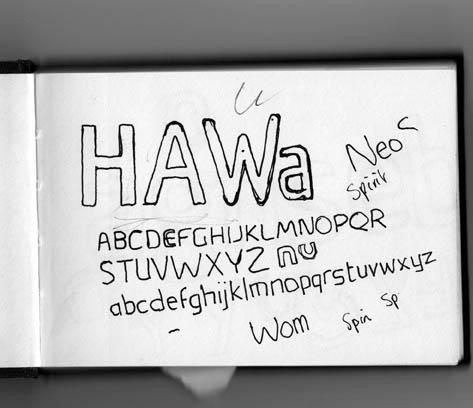 HAWa
Neo
Spirit
ABCDEFGHIJKLMNOPQR
STUVWXYZ nu
abcdefghijklmnopqrstuvwxyz
Wom Spin Sp